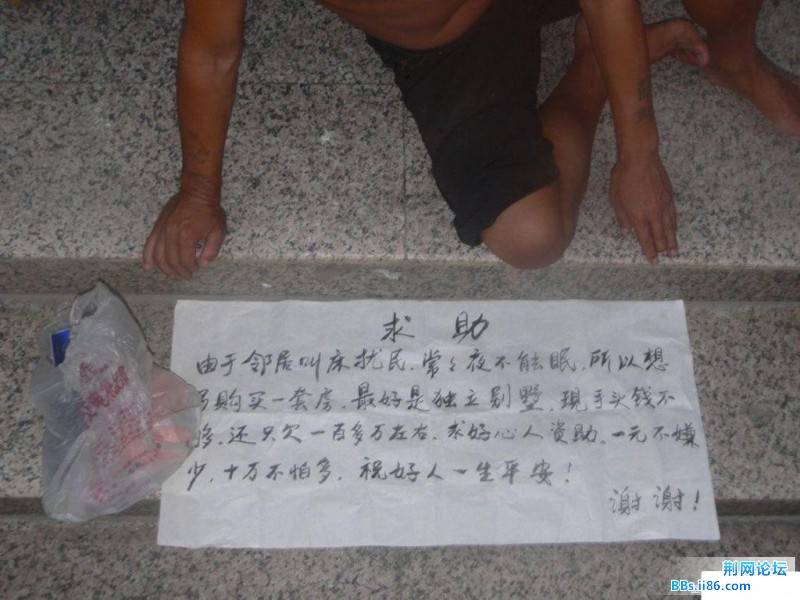 求 助
由于邻居叫床扰民,常々夜不能眠,所以想
购买一套房,最好是独立别墅,现手买钱不
够,还只欠一百多万左右,求好心人资助,一元不嫌
少,十万不怕多,祝好人一生平安!
谢谢!
荆网论坛
BBs.ii86.com